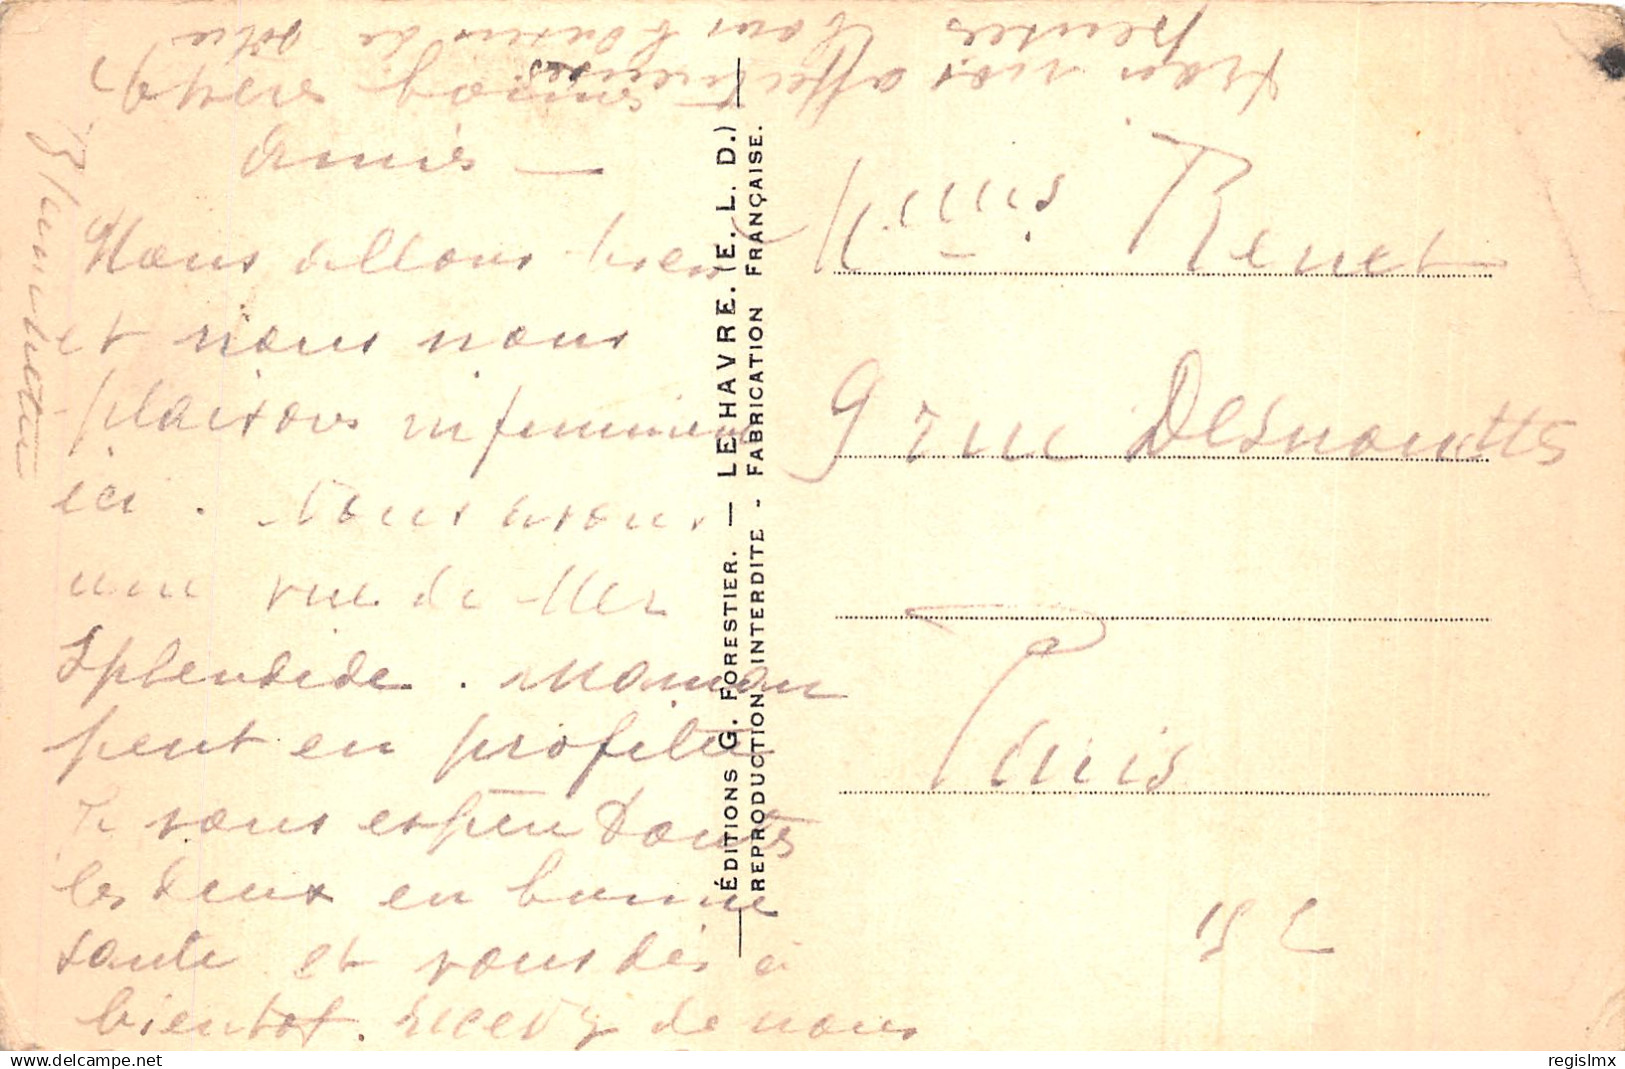 chères bonnes
amies —
Nous allons bien
et nous nous
plaisons infiniment
ici. Nous avons
une vue de Mer
Splendide. Maman
peut en profiter
Je vous espère toutes
les deux en bonne
santé et vous dis à
bientôt. Recevez de nous
nos affectueuses
pensées
ÉDITIONS G. FORESTIER. — LE HAVRE. (E. L. D.)
REPRODUCTION INTERDITE - FABRICATION FRANÇAISE.
Renet
9 rue Desnouettes
Paris
15 E
regislmx